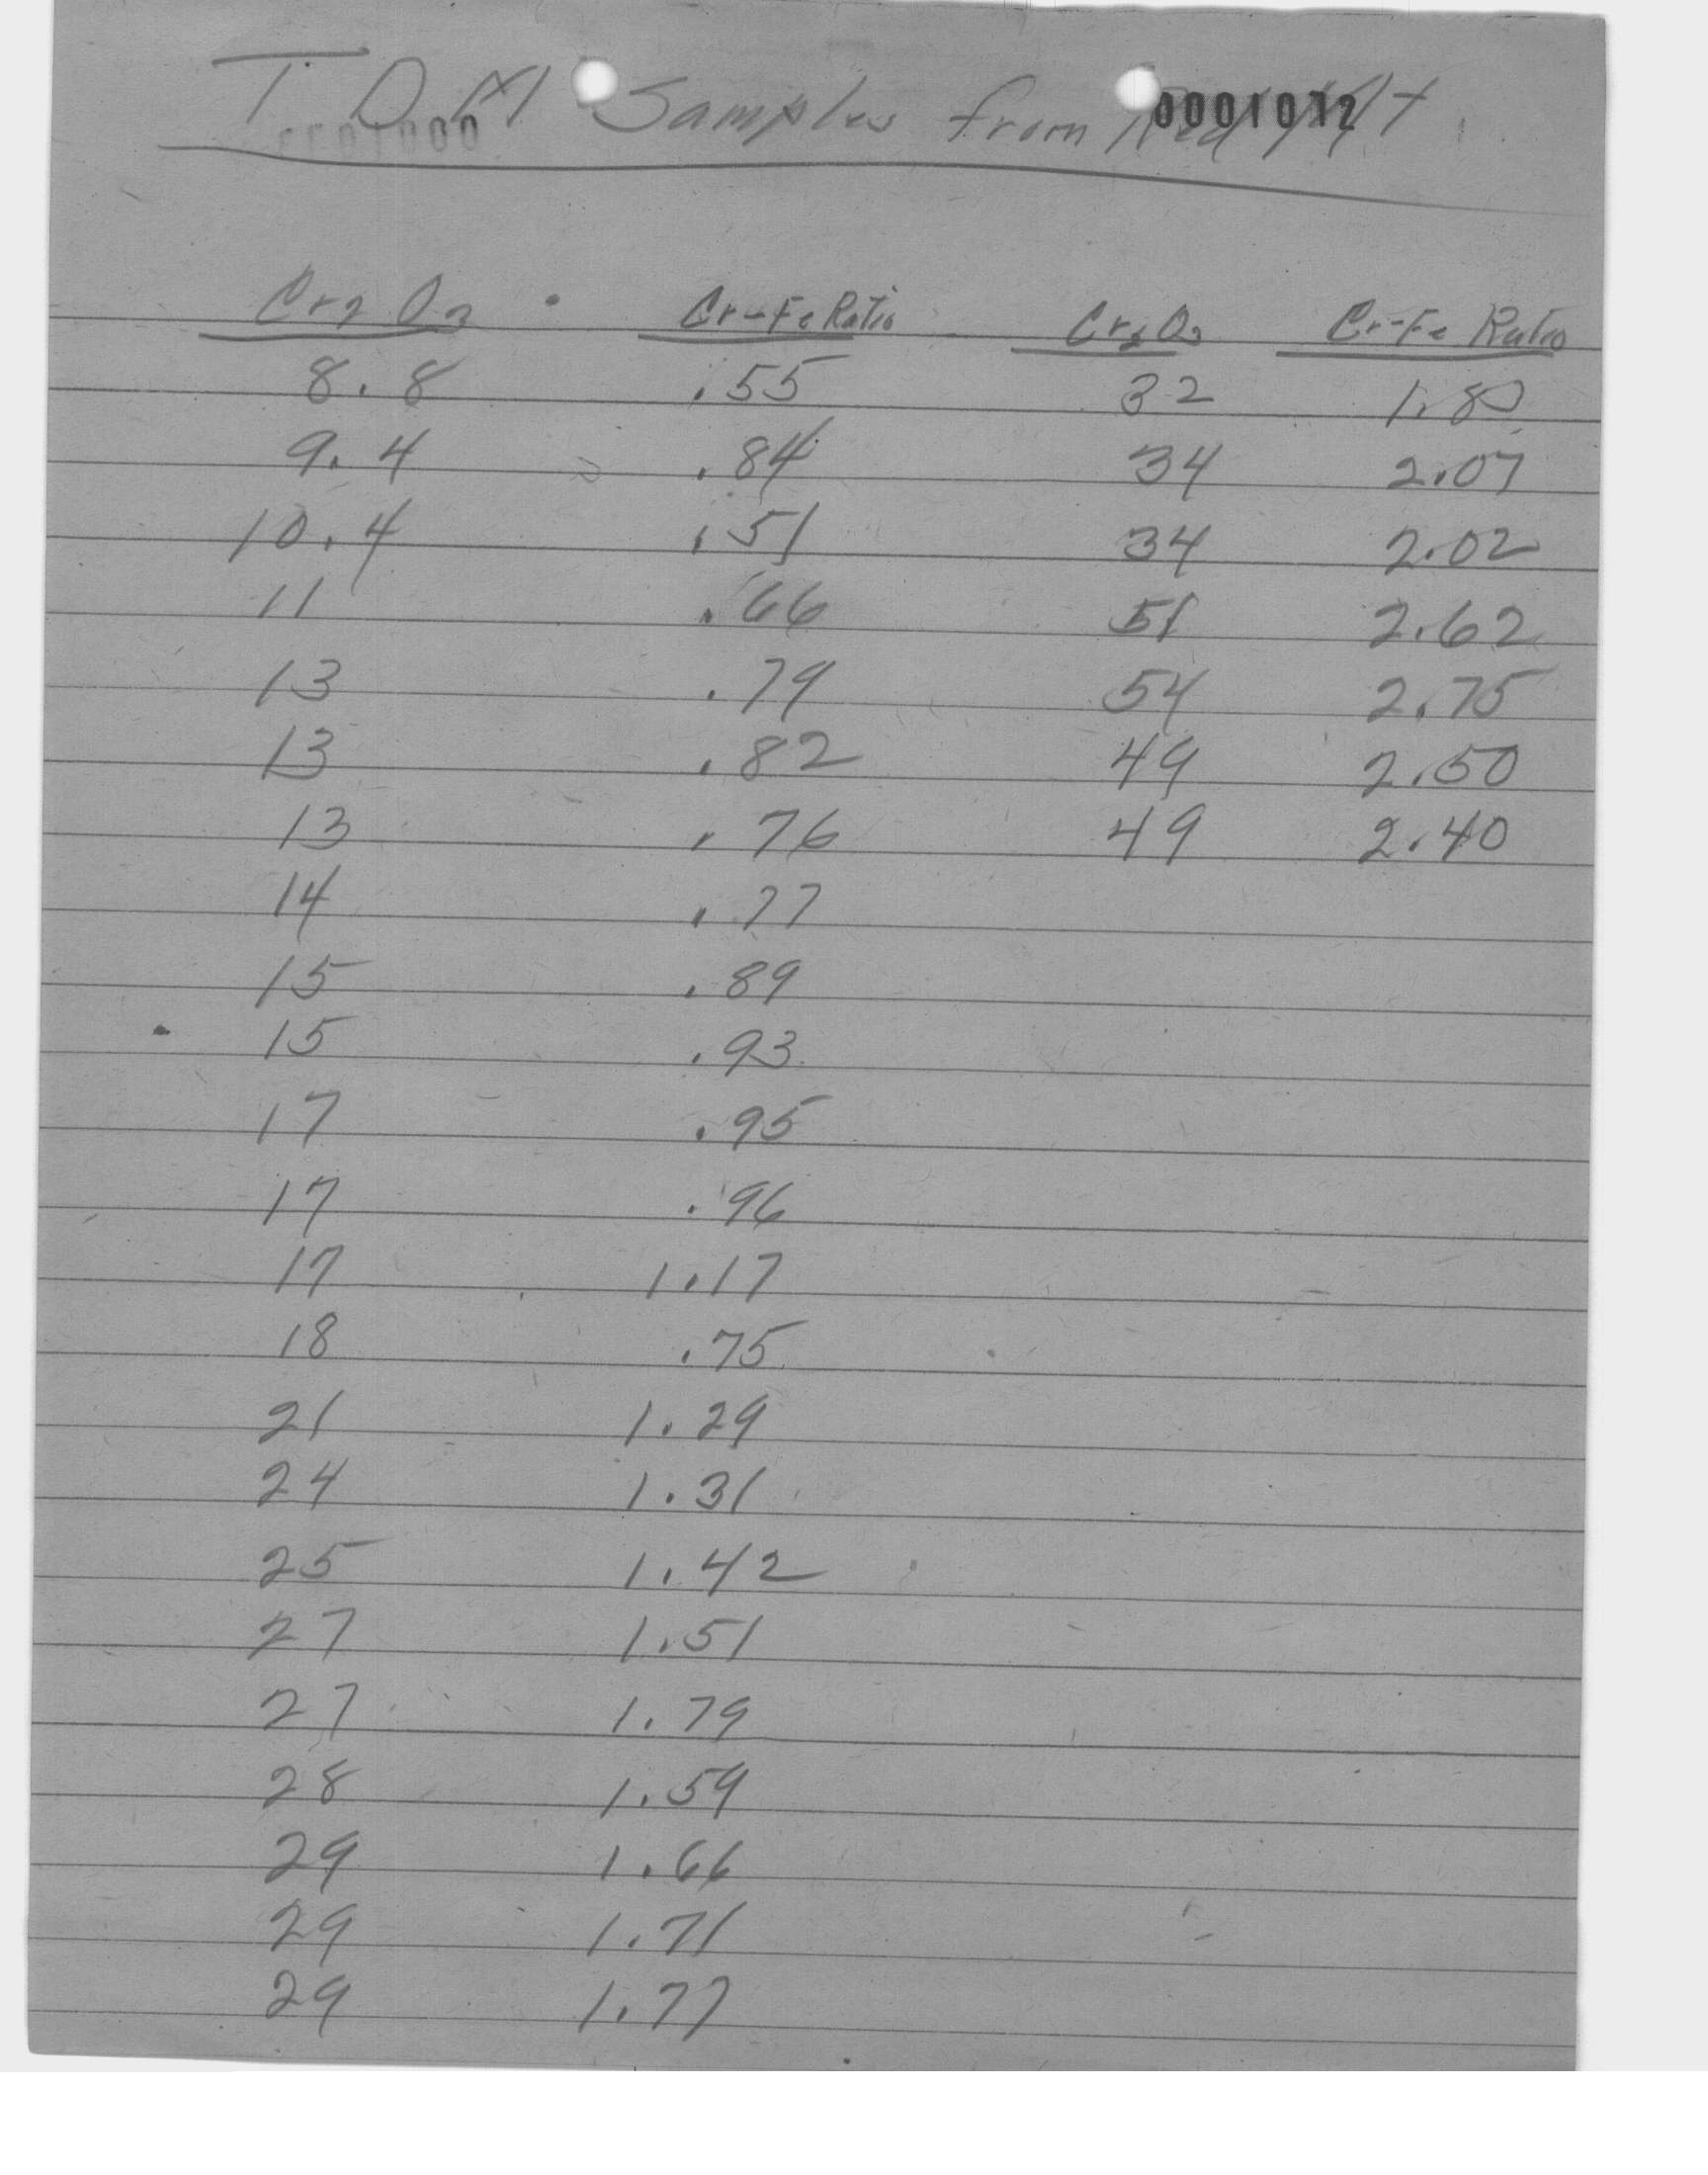 T. D. M Samples from Red Mt
0001012
Cr2 O3 Cr-Fe Ratio Cr2 O3 Cr-Fe Ratio
8.8 .55 32 1.80
9.4 .84 34 2.07
10.4 .51 34 2.02
11 .66 51 2.62
13 .79 54 2.75
13 .82 49 2.50
13 .76 49 2.40
14 .77
15 .89
15 .93
17 .95
17 .96
17 1.17
18 .75
21 1.29
24 1.31
25 1.42
27 1.51
27 1.79
28 1.59
29 1.66
29 1.71
29 1.77